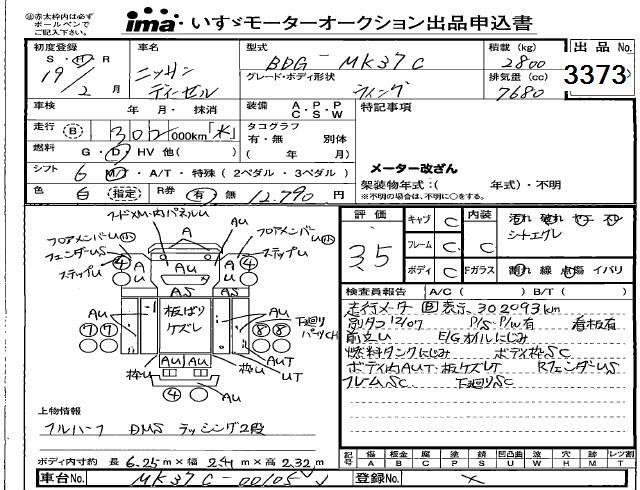 ㊟赤太枠内は必ず
ボールペンで
ご記入下さい。
ima いすゞモーターオークション出品申込書
初度登録
S・H・R
19年
2月
車名
ニッサン
ディーゼル
型式
BDG-MK37C
グレード・ボディ形状
ウイング
積載(kg)
2800
排気量(cc)
7680
出品No.
3373
車検 年・月・抹消
装備 A・P・P
C・S・W
特記事項
走行 B 302,000km「不」
タコグラフ
有・無 別体
( 年 月)
燃料 G・D・HV 他( )
シフト 6 M/T・A/T・特殊(2ペダル・3ペダル)
メーター改ざん
架装物年式:( 年式)・不明
※不明の場合は、不明に○をする。
色 白 指定 R券 有・無 12,790円
フードメM・内パネルU
フロアメンバーU 小
フェンダーUS
ステップU
A
AU
AU
フロアメンバーU 小
ステップU
4
4
AU
A
U
A
U
AS
AS
板ばり
ケズレ
7 7
8 8
下廻り
パーツCH
AU AU
枠U
枠U
AUT
UT
4
AU
上物情報
フルハーフ DMS ラッシング2段
ボディ内寸約 長 6.25m×幅 2.41m×高 2.32m
評価
3.5
キャブ C
フレーム C
ボディ C
内装 C
Fガラス
汚れ 破れ ヤニ スレ
シートエグレ
割れ 線 点傷 イバリ
検査員報告 A/C( ) B/T( )
走行メーターB表示、302093km
別タコ12/07 P/S・P/W有 看板有
前立U E/Gオイルにじみ
燃料タンクにじみ ボディ枠SC
ボディ内AUT・板ケズレT RフェンダーUS
フレームSC 下廻りSC
記号 傷 板金 腐 塗 錆 凹凸曲 波 穴 跡 ワレ等
A B C P S U W H M T
車台No. MK37C-00105
登録No. ×